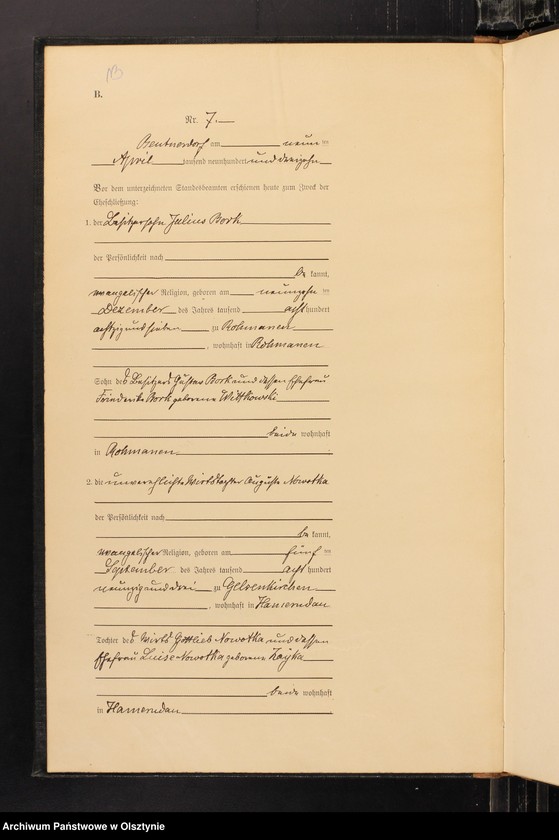 B.
Nr. 7.
Beutnerdorf am neun ten
April tausend neunhundert und dreizehn
Vor dem unterzeichneten Standesbeamten erschienen heute zum Zweck der
Eheschließung:
1. der Besitzersohn Julius Bork
der Persönlichkeit nach
be kannt,
evangelischer Religion, geboren am neunzehn ten
Dezember des Jahres tausend acht hundert
achtzig und sieben zu Rohmanen
, wohnhaft in Rohmanen
Sohn des Besitzers Gustav Bork und dessen Ehefrau
Friederike Bork geborene Wittkowski
beide wohnhaft
in Rohmanen
2. die unverehelichte Wirtstochter Auguste Nowotka
der Persönlichkeit nach
be kannt,
evangelischer Religion, geboren am fünf ten
September des Jahres tausend acht hundert
neunzig und drei zu Gelsenkirchen
, wohnhaft in Hamerudau
Tochter des Wirts Gottlieb Nowotka und dessen
Ehefrau Luise Nowotka geborene
beide wohnhaft
in Hamerudau
Archiwum Państwowe w Olsztynie